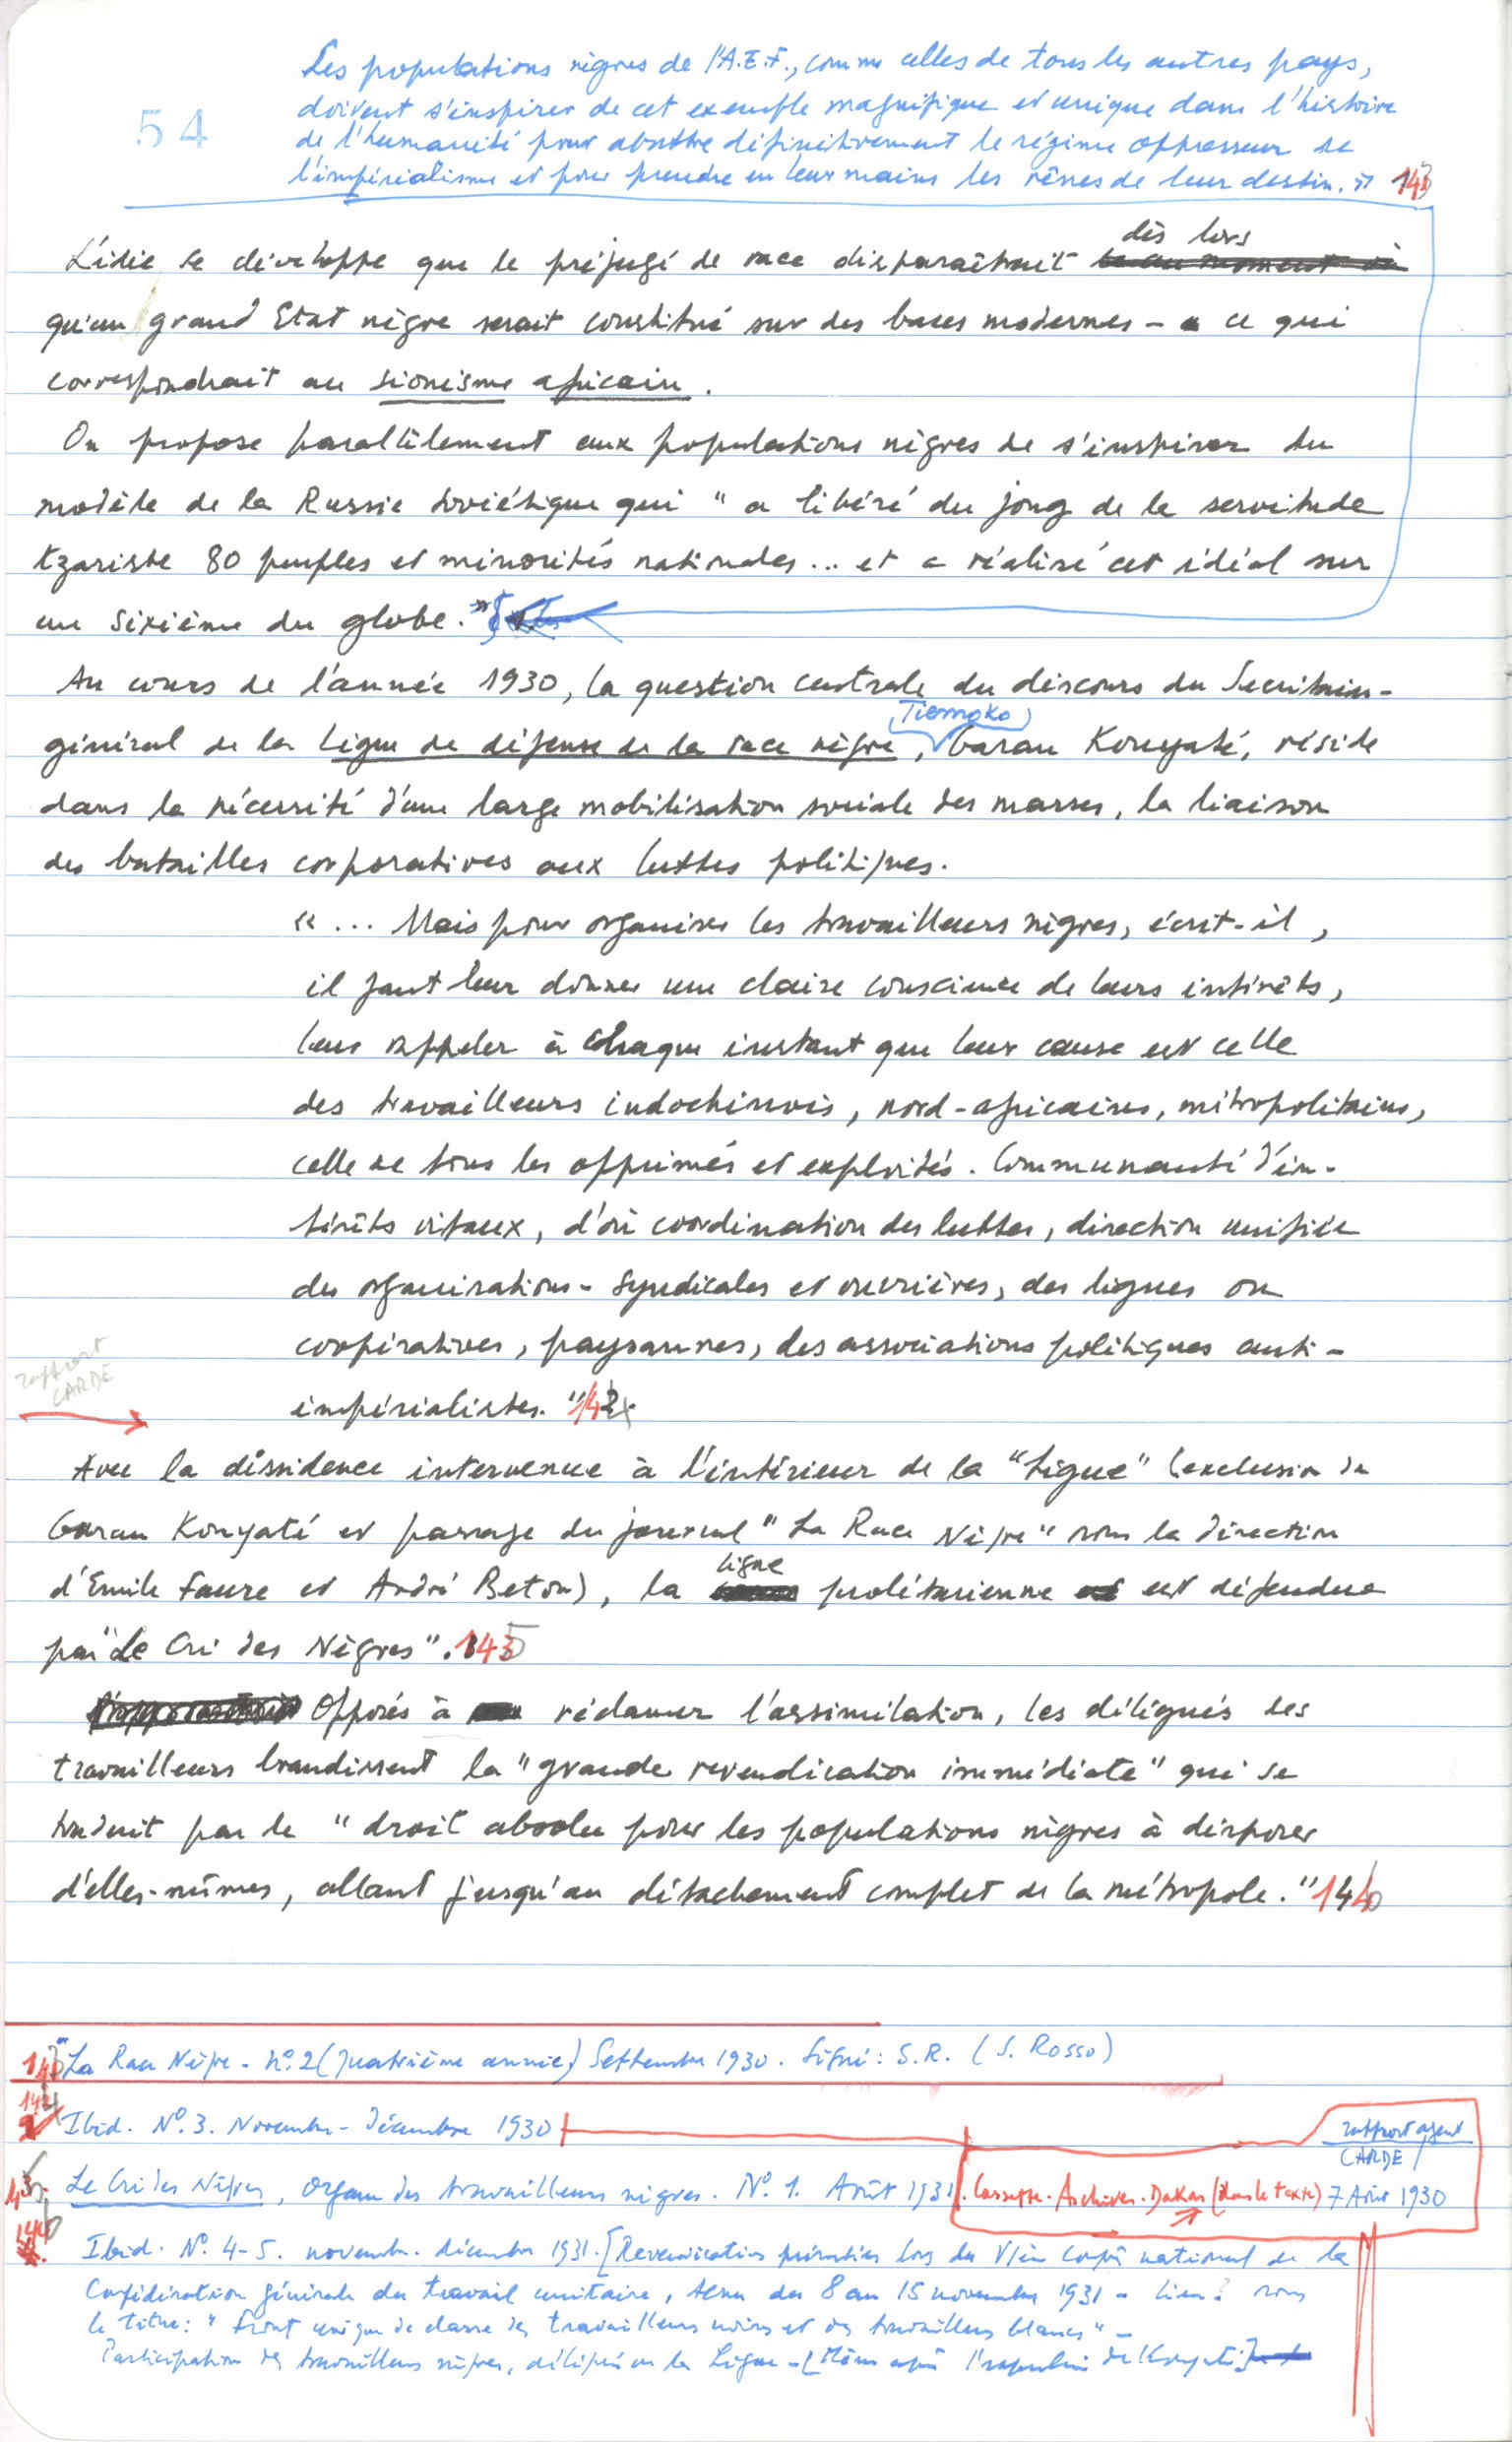 54
Les populations nègres de l'A.E.F., comme celles de tous les autres pays,
doivent s'inspirer de cet exemple magnifique et unique dans l'histoire
de l'humanité pour abattre définitivement le régime oppresseur de
l'impérialisme et pour prendre en leur mains les rênes de leur destin. » 143
dès lors
L'idée se développe que le préjugé de race disparaîtrait
qu'un grand Etat nègre serait constitué sur des bases modernes - ce qui
correspondrait au sionisme africain.
On propose parallèlement aux populations nègres de s'inspirer du
modèle de la Russie soviétique qui "a libéré du joug de la servitude
tzariste 80 peuples et minorités nationales... et a réalisé cet idéal sur
un sixième du globe."
Au cours de l'année 1930, la question centrale du discours du Secrétaire-
Tiemoko
général de la Ligue de défense de la race nègre, Garan Kouyaté, réside
dans la nécessité d'une large mobilisation sociale des masses, la liaison
des batailles corporatives aux luttes politiques.
"... Mais pour organiser les travailleurs nègres, écrit-il,
il faut leur donner une claire conscience de leurs intérêts,
leur rappeler à chaque instant que leur cause est celle
des travailleurs indochinois, nord-africains, métropolitains,
celle de tous les opprimés et exploités. Communauté d'in-
térêts vitaux, d'où coordination des luttes, direction unifiée
des organisations - syndicales et ouvrières, des ligues ou
coopératives, paysannes, des associations politiques anti-
rapport
CARDE
impérialistes."
Avec la dissidence intervenue à l'intérieur de la "Ligue" (exclusion de
Garan Kouyaté et passage du journal "La Race Nègre" sous la direction
ligne
d'Emile Faure et André Beton), la prolétarienne est défendue
par "Le Cri des Nègres". 145
Opposés à réclamer l'assimilation, les délégués des
travailleurs brandissent la "grande revendication immédiate" qui se
traduit par le "droit absolu pour les populations nègres à disposer
d'elles-mêmes, allant jusqu'au détachement complet de la métropole."
La Race Nègre - N°. 2 (quatrième année) Septembre 1930. Signé : S.R. (S. Rosso)
Ibid. N°. 3. Novembre - Décembre 1930
rapport agent
CARDE
Le Cri des Nègres, organe des travailleurs nègres. N°. 1. Août 1931. Cassette. Archives. Dakar (dans le texte) 7 Août 1930
Ibid. N°. 4-5. novembre. décembre 1931. [Revendication lors du VIè national de la
Confédération générale du travail unitaire, tenu du 8 au 15 novembre 1931 - lieu? sous
le titre : "Front unique de classe des travailleurs noirs et des travailleurs blancs" -
Participation des travailleurs nègres, la Ligue - de Kouyaté]